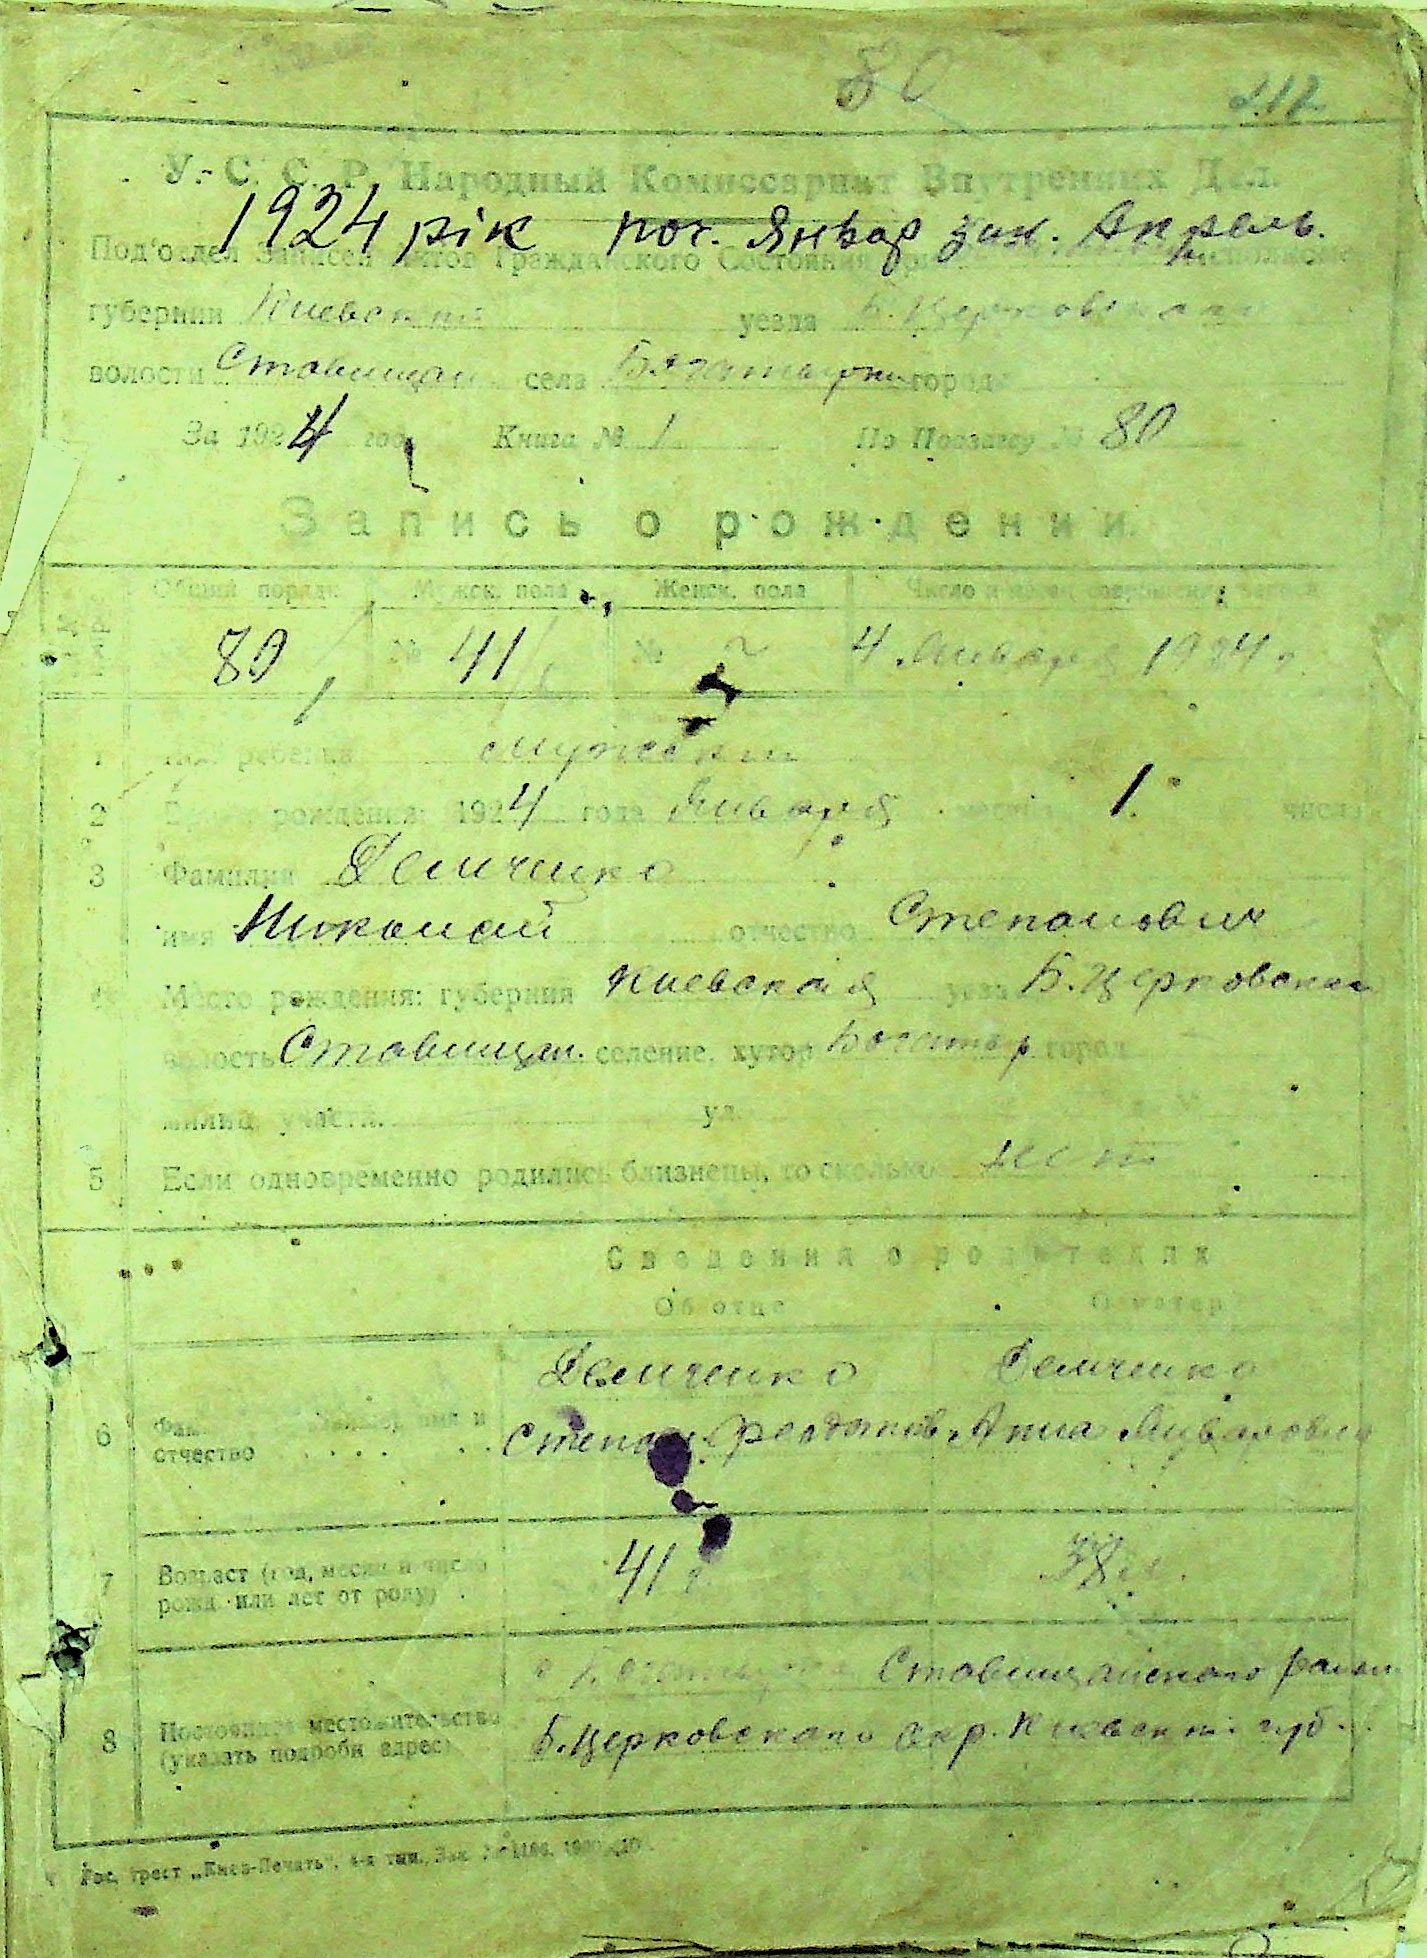 80
212
У. С. С. Р. Народный Комиссариат Внутренних Дел.
1924 рік поч. Январ зак. Апрель.
Под'отдел Записей Актов Гражданского Состояния при
губернии Киевский уезда Б. Церковского
волости Ставищан села Богатырки города
За 1924 год Книга № 1 По Показу № 80
Запись о рождении.
Общий порядк. Мужск. пола Женск. пола Число и месяц совершения записи
80 № 41 № ~ 4 Января 1924 г.
1 Пол ребенка мужский
2 Время рождения: 1924 года Января месяца 1. числа
3 Фамилия Демченко
имя Николай отчество Степанович
4 Место рождения: губерния Киевская уезд Б. Церковский
волость Ставищан. селение, хутор Богатыр город
милиц. участк. ул.
5 Если одновременно родились близнецы, то сколько нет
Сведения о родителях
Об отце О матери
Демченко Демченко
6 Фамилия имя и
отчество Степан Анна
7 Возраст (год, месяц и число
рожд. или лет от роду) 41 г. 38 л.
с. Богатырка Ставищанского район
8 Постоянное местожительство
(указать подробн адрес) Б. Церковского Окр. Киевский губ.
Гос. трест „Киев-Печать", 4-я тип., Зак. № 1196, 1920